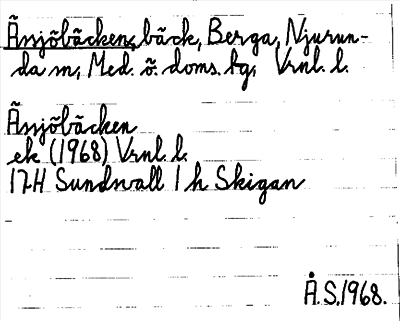 Änjöbäcken, bäck, Berga, Njurun-
da sn, Med. ö. doms. tg, Vrnl. l.
Änjöbäcken
ek (1968) Vrnl. l.
17H Sundsvall 1 h Skigan
Å.S. 1968.